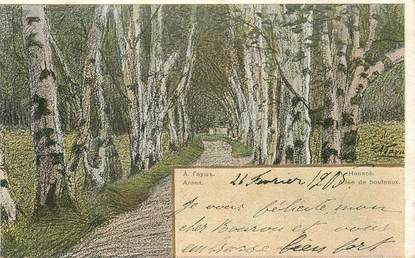 А. Гаушъ.
Аллея.
A. Hausch.
Allée de bouleaux.
21 Fevrier 1903
Je vous félicite, mon
cher et vous
embrasse bien fort